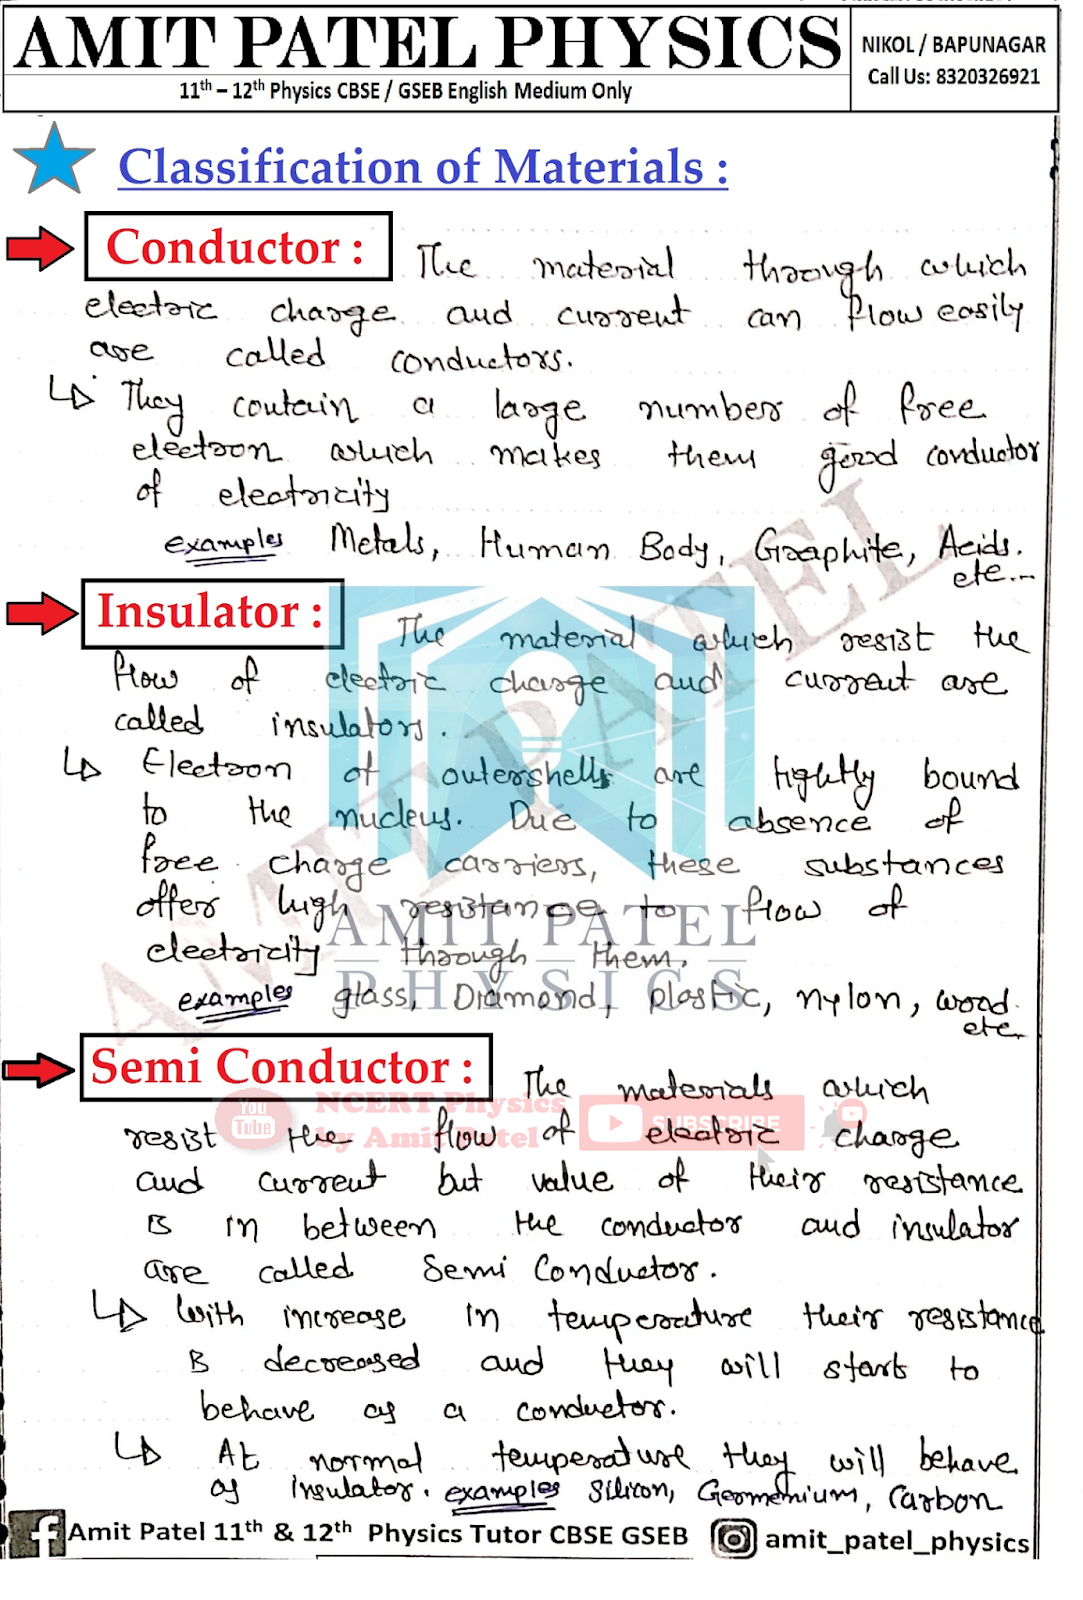 AMIT PATEL PHYSICS
11th – 12th Physics CBSE / GSEB English Medium Only
NIKOL / BAPUNAGAR
Call Us: 8320326921
Classification of Materials :
Conductor : The material through which
electric charge and current can flow easily
are called conductors.
They contain a large number of free
electron which makes them good conductor
of electricity
examples Metals, Human Body, Graaphite, Acids.
etc...
Insulator : The material which resist the
flow of electric charge and current are
called insulators.
Electron of outershells are tightly bound
to the nucleus. Due to absence of
free charge carriers, these substances
offers high resistance to flow of
electricity through them.
examples glass, Diamond, plastic, nylon, wood.
etc.
AMIT PATEL
PHYSICS
AMIT PATEL
Semi Conductor : The materials which
resist the flow of electric charge
and current but value of their resistance
is in between the conductor and insulator
are called Semi Conductor.
You Tube
NCERT Physics
by Amit Patel
SUBSCRIBE
With increase in temperature their resistance
is decreased and they will starts to
behave as a conductor.
At normal temperature they will behave
as insulator. examples Silicon, Germenium, Carbon
Amit Patel 11th & 12th Physics Tutor CBSE GSEB amit_patel_physics